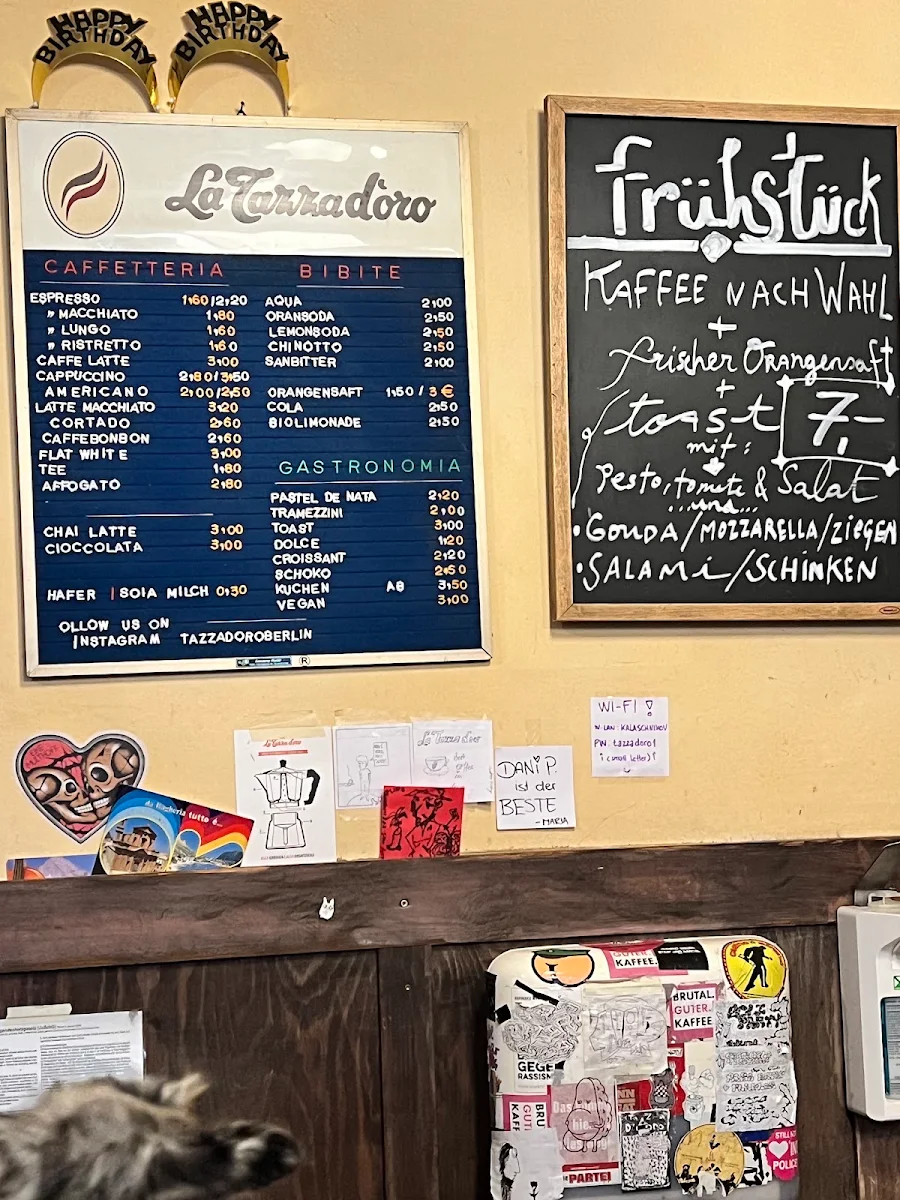 HAPPY
BIRTHDAY
HAPPY
BIRTHDAY
La Tazza d'oro
CAFFETTERIA
ESPRESSO 1,60/2,20
" MACCHIATO 1,80
" LUNGO 1,60
" RISTRETTO 1,60
CAFFE LATTE 3,00
CAPPUCCINO 2,80/3,50
AMERICANO 2,00/2,50
LATTE MACCHIATO 3,20
CORTADO 2,60
CAFFEBONBON 2,60
FLAT WHITE 3,00
TEE 1,80
AFFOGATO 2,80
CHAI LATTE 3,00
CIOCCOLATA 3,00
HAFER | SOIA MILCH 0,30
OLLOW US ON
INSTAGRAM TAZZADOROBERLIN
BIBITE
AQUA 2,00
ORANSODA 2,50
LEMONSODA 2,50
CHINOTTO 2,50
SANBITTER 2,00
ORANGENSAFT 1,50 / 3 €
COLA 2,50
BIOLIMONADE 2,50
GASTRONOMIA
PASTEL DE NATA 2,20
TRAMEZZINI 2,00
TOAST 3,00
DOLCE 1,20
CROISSANT 2,20
SCHOKO 2,50
KUCHEN AB 3,50
VEGAN 3,00
Frühstück
KAFFEE NACH WAHL
+
frischer Orangensaft
+
toast 7,-
mit:
Pesto, tomate & Salat
...und...
• GOUDA/MOZZARELLA/ZIEGEN
• SALAMI/SCHINKEN
WI-FI !
W-LAN: KALASCHNIKOV
PW: tazzadoro1
! (small letter) !
DANI P.
ist der
BESTE
- MARIA
La Tazza d'oro
La Tazza d'oro
da Bagheria tutto è...
GUTER
KAFFEE.
BRUTAL.
GUTER.
KAFFEE
GEGE
RASSISM
KAFF
BRU
GUT
Die PARTEI
STILL
POLICE